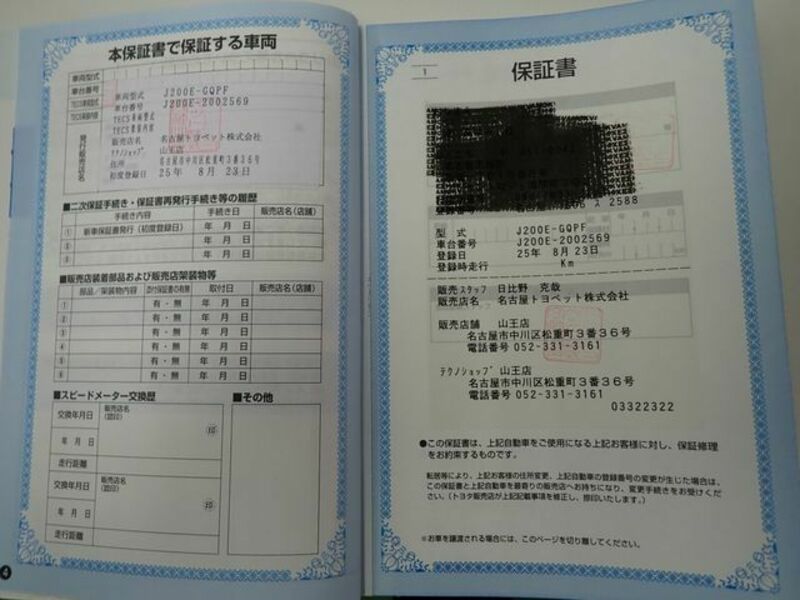 本保証書で保証する車両
車両型式
車台番号
TECS車両型式
TECS架装内容
発行販売店名
車両型式 J200E-GQPF
車台番号 J200E-2002569
TECS車両型式
TECS架装内容
販売店名 名古屋トヨペット株式会社
テクノショップ 山王店
住所 名古屋市中川区松重町3番36号
初度登録日 25年 8月 23日
■二次保証手続き・保証書再発行手続き等の履歴
手続き内容 手続き日 販売店名(店舗)
① 新車保証書発行(初度登録日) 年 月 日
② 年 月 日
③ 年 月 日
■販売店装着部品および販売店架装物等
部品/架装物内容 添付保証書の有無 取付日 販売店名(店舗)
① 有・無 年 月 日
② 有・無 年 月 日
③ 有・無 年 月 日
④ 有・無 年 月 日
⑤ 有・無 年 月 日
⑥ 有・無 年 月 日
■スピードメーター交換歴
交換年月日 販売店名(認印)
年 月 日 印
走行距離
交換年月日 販売店名(認印)
年 月 日 印
走行距離
■その他
4
1
保証書
ス 2588
型 式 J200E-GQPF
車台番号 J200E-2002569
登録日 25年 8月 23日
登録時走行 Km
販売スタッフ 日比野 克哉
販売店名 名古屋トヨペット株式会社
販売店舗 山王店
名古屋市中川区松重町3番36号
電話番号 052-331-3161
テクノショップ 山王店
名古屋市中川区松重町3番36号
電話番号 052-331-3161
03322322
●この保証書は、上記自動車をご使用になる上記お客様に対し、保証修理
をお約束するものです。
転居等により、上記お客様の住所変更、上記自動車の登録番号の変更が生じた場合は、
この保証書と上記自動車を最寄りの販売店へお持ちになり、変更手続きをお受けくだ
さい。(トヨタ販売店が上記記載事項を修正し、捺印いたします。)
※お車を譲渡される場合には、このページを切り離してください。